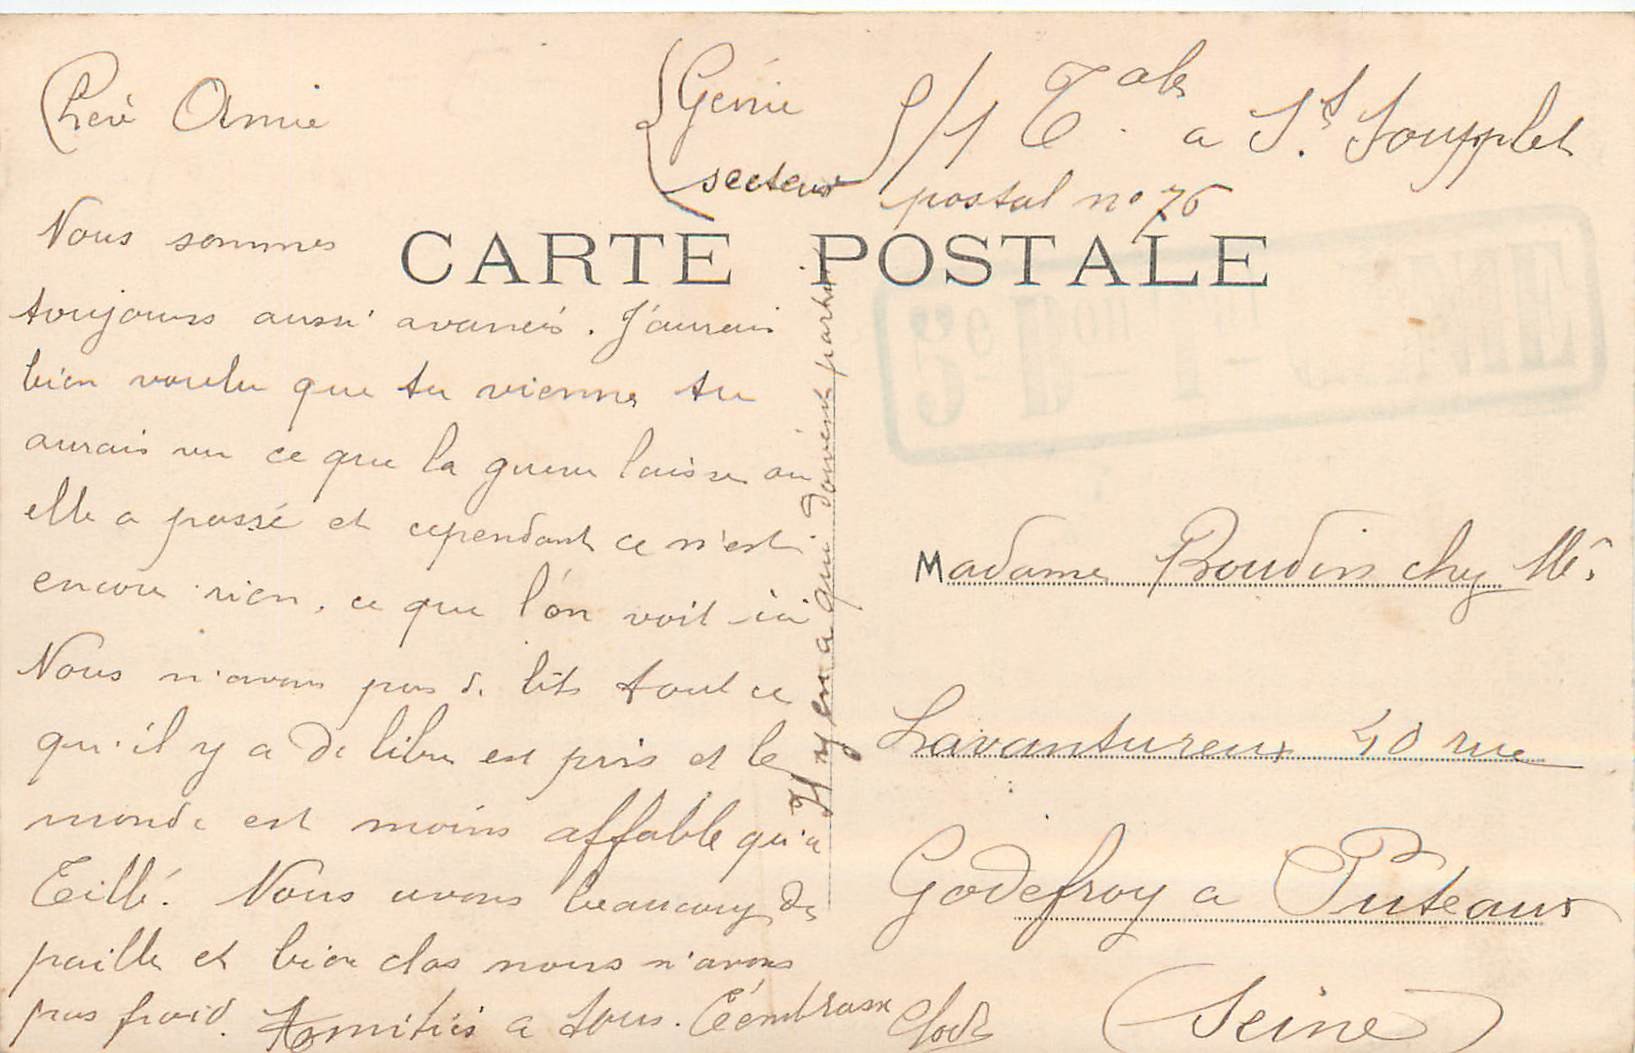 Chère Amie
Nous sommes
toujours aussi avancés. J'aurais
bien voulu que tu vienne tu
aurais vu ce que la guerre laisse où
elle a passé et cependant ce n'est
encore rien, ce que l'on voit ici
Nous n'avons pas de lits tout ce
qu'il y a de libre est pris et le
monde est moins affable qu'à
Teillé. Nous avons beaucoup de
paille et bien clos nous n'avons
pas froid. Amitiés a tous. T'embrasse
Il y en a qui doivent partir
Génie 5/1 T. à St Soupplet
secteur postal no 76
CARTE POSTALE
Madame Boudin chy Me.
Lavantureux 40 rue
Godefroy a Puteaux
(Seine)